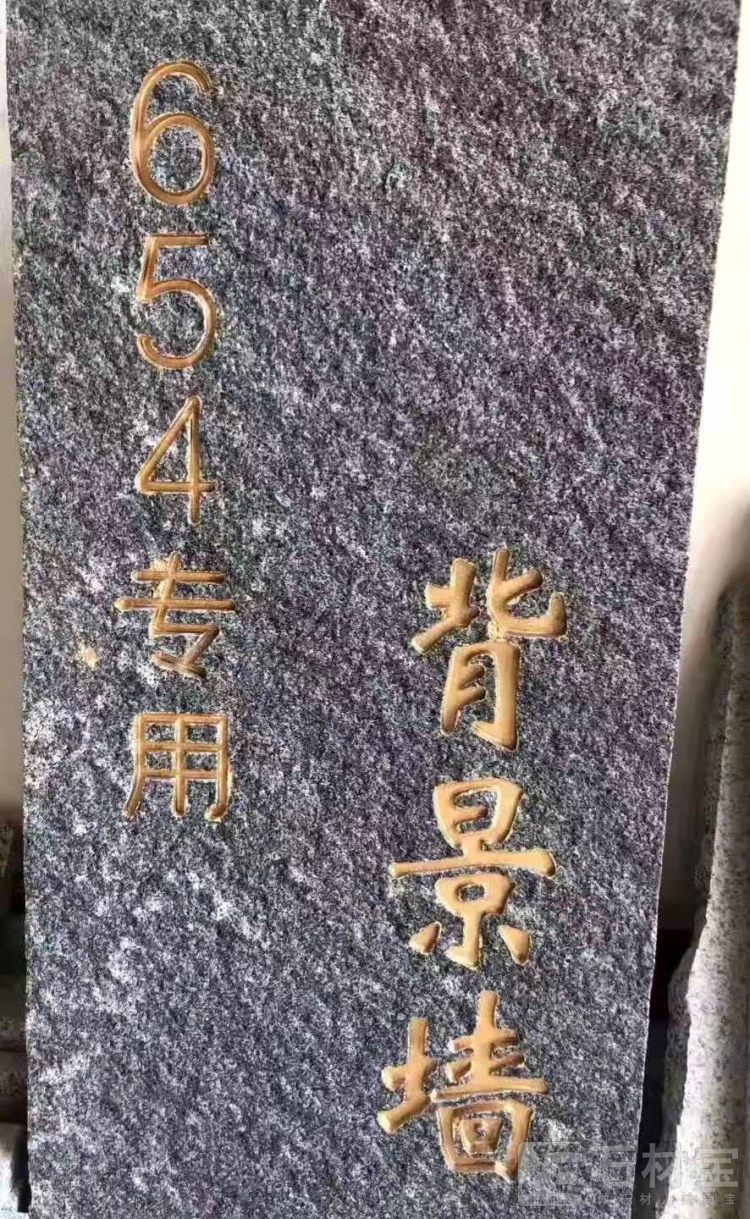 654专用
背景墙
石材宝